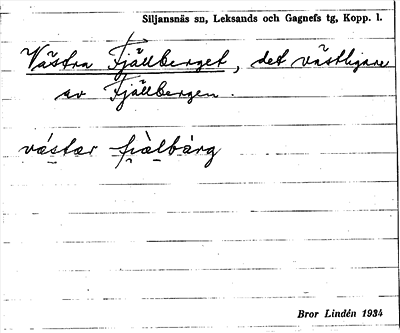 Siljansnäs sn, Leksands och Gagnefs tg, Kopp. l.
Västra Fjällberget, det västligare
av Fjällbergen.
västär fiàlbärg
Bror Lindén 1934